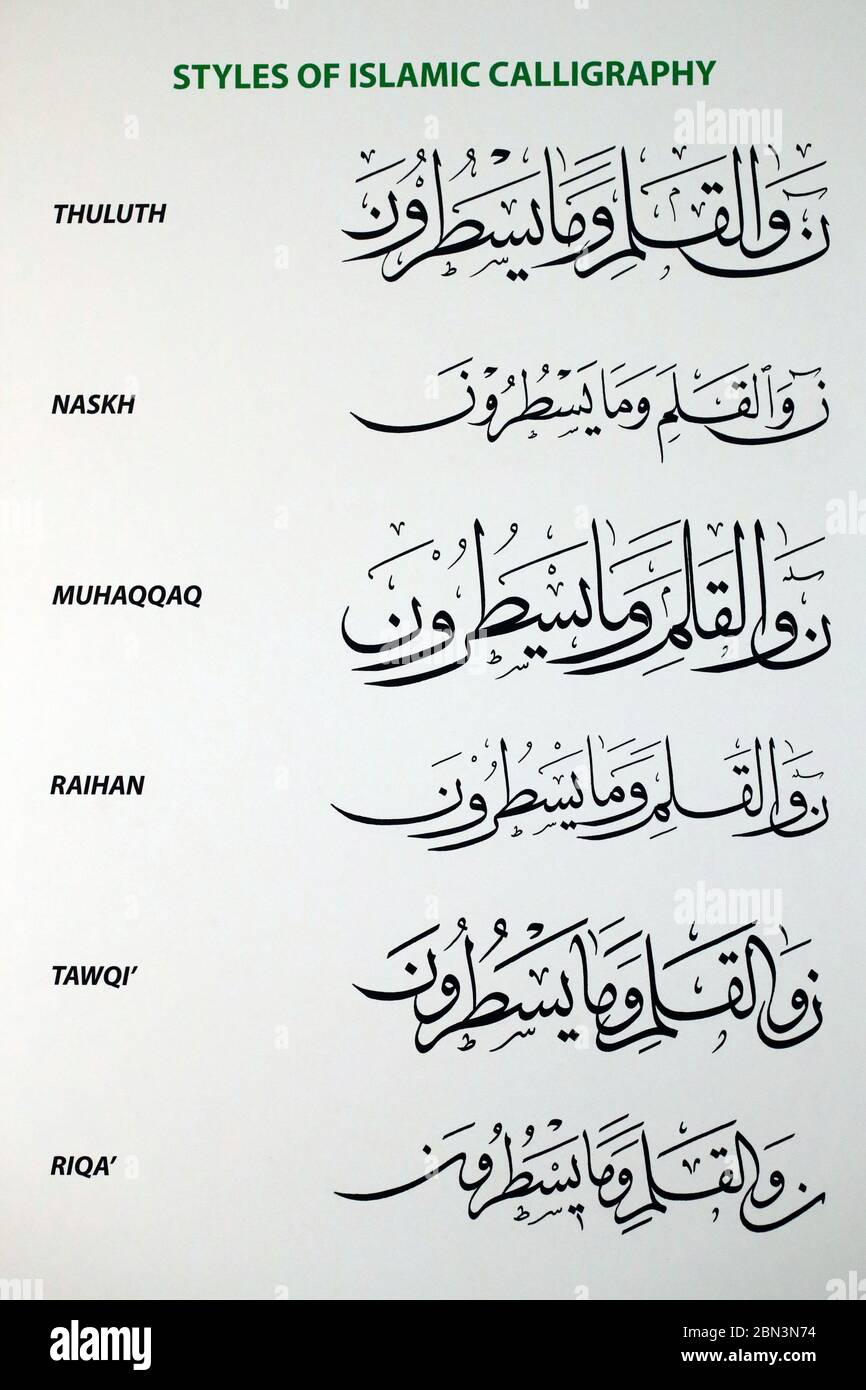 STYLES OF ISLAMIC CALLIGRAPHY
THULUTH
ن وَالْقَلَمِ وَمَا يَسْطُرُونَ
NASKH
ن وَالْقَلَمِ وَمَا يَسْطُرُونَ
MUHAQQAQ
ن وَالْقَلَمِ وَمَا يَسْطُرُونَ
RAIHAN
ن وَالْقَلَمِ وَمَا يَسْطُرُونَ
TAWQI’
ن وَالْقَلَمِ وَمَا يَسْطُرُونَ
RIQA’
ن وَالْقَلَمِ وَمَا يَسْطُرُونَ
alamy
alamy
a
alamy
Image ID: 2BN3N74
www.alamy.com